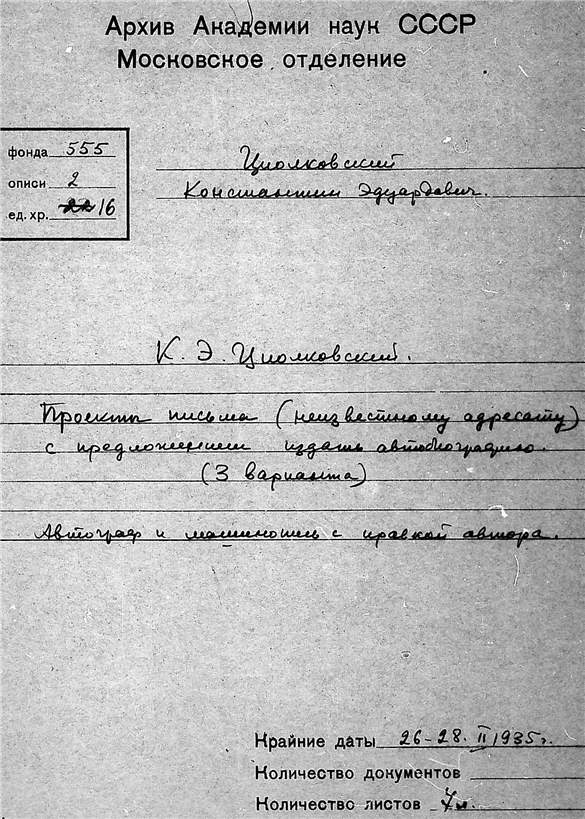 Архив Академии наук СССР
Московское отделение
фонда 555
описи 2
ед. хр. 22 16
Циолковский
Константин Эдуардович.
К. Э. Циолковский.
Проекты письма (неизвестному адресату)
с предложением издать автобиографию.
(3 варианта)
Автограф и машинопись с правкой автора.
Крайние даты 26-28. II 1935г.
Количество документов
Количество листов 7л.